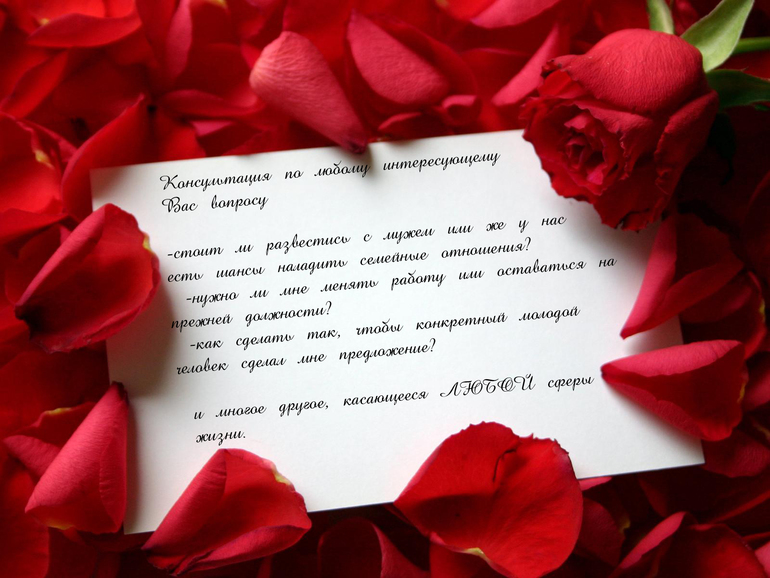 Консультация по любому интересующему
Вас вопросу
-стоит ли развестись с мужем или же у нас
есть шансы наладить семейные отношения?
-нужно ли мне менять работу или оставаться на
прежней должности?
-как сделать так, чтобы конкретный молодой
человек сделал мне предложение?
и многое другое, касающееся ЛЮБОЙ сферы
жизни.